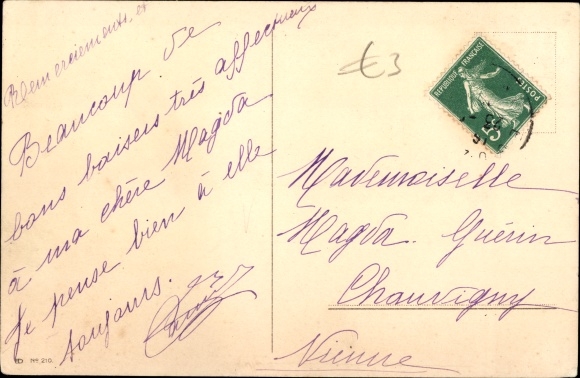 Remerciements, et
Beaucoup de
bons baisers très affectueux
à ma chère Magda
Je pense bien à elle
toujours.
£3
RÉPUBLIQUE FRANÇAISE
POSTES
5
Mademoiselle
Magda. Guérin
Chauvigny
Vienne
No. 210.